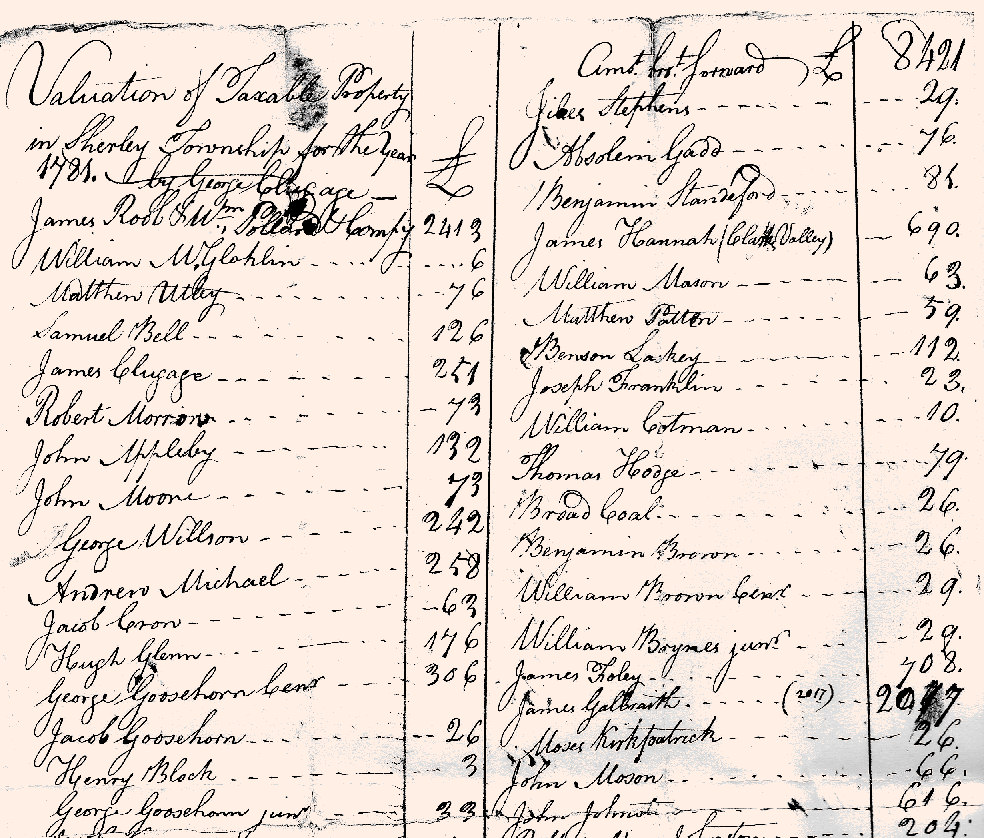 Valuation of Taxable Property
in Sherley Township for the Year
1781. by George Clugage
£
James Rool & Wm. Pollard & Compy 2413
William McGlohlin 6
Matthew Utley 76
Samuel Bell 126
James Clugage 251
Robert Morrow 73
John Appleby 132
John Moore 73
George Willson 242
Andrew Michael 258
Jacob Cron 63
Hugh Glenn 176
George Goosehorn Cenr 306
Jacob Goosehorn 26
Henry Block 3
George Goosehorn junr 33
Amt. brt. forward £ 8421
Giles Stephens 29.
Absolem Gadd 76.
Benjamin Standeford 81.
James Hannah (Valley) 690.
William Mason 63.
Matthew Patton 59.
Benson Lakey 112.
Joseph Franklin 23.
William Cotman 10.
Thomas Hodge 79.
Broad Coal 26.
Benjamin Brown 26.
William Brown Cenr 29.
William Brymes junr 29.
James Foley 708.
James Galbraith (2017) 2017
Moses Kirkpatrick 26.
John Moson 66.
John Johnston 616.
204.